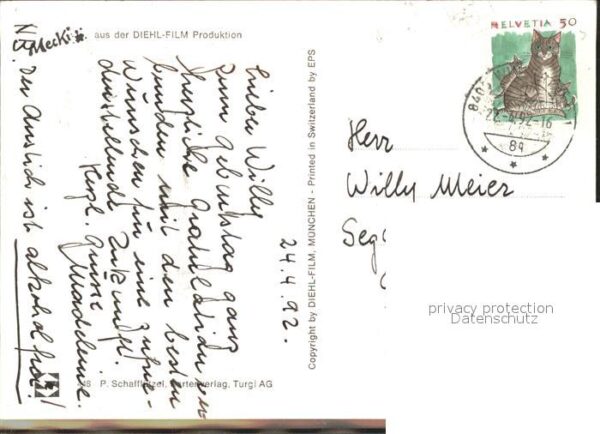 Mecki aus der DIEHL-FILM Produktion
Lieber Willy
Zum Geburtstag ganz
herzliche Gratulationen
bunden mit den besten
Wünschen für eine zufrie-
denstellende Zukunft.
Herzl. Grüsse
Madeleine.
24.4.92.
N.B. Der Anstich ist alkoholfrei!
Copyright by DIEHL-FILM, MÜNCHEN - Printed in Switzerland by EPS
P. Schafflützel, Kartenverlag, Turgi AG
HELVETIA 50
8401
22.-4.92-16
89
Herr
Willy Meier
Seg
privacy protection
Datenschutz